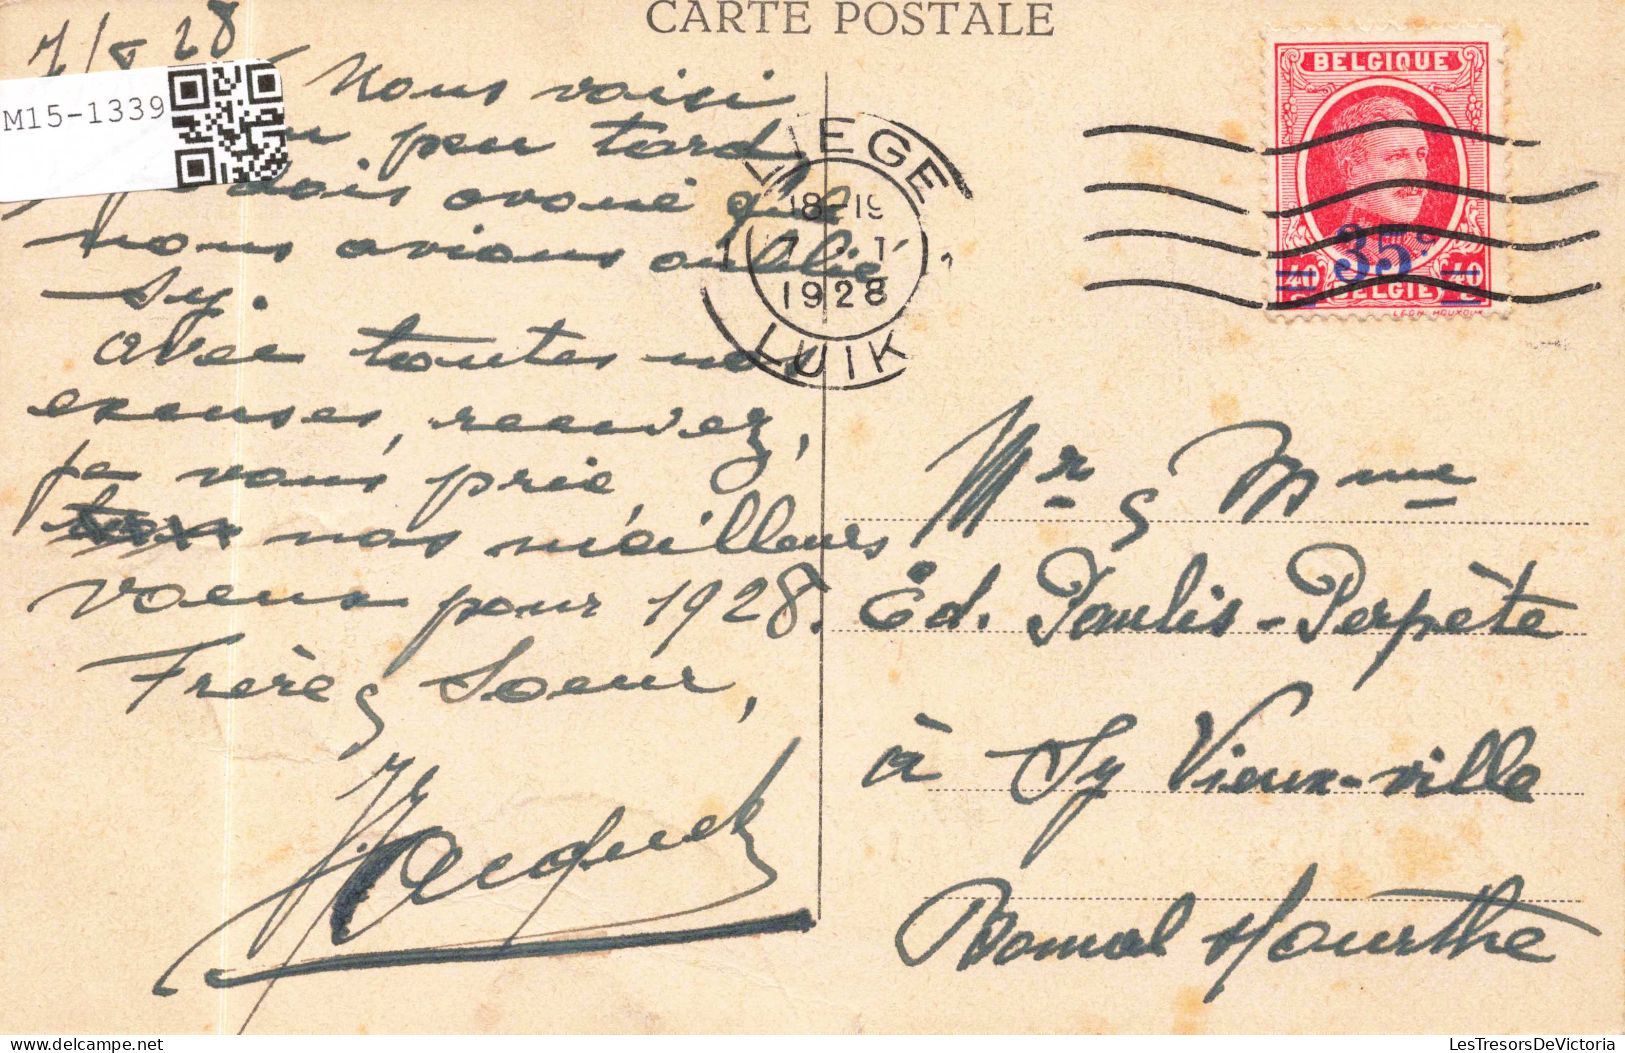 CARTE POSTALE
7/1 28
M15-1339
Nous voisi
un peu tard
je dois avoué que
nous avions oublié
Sy.
Avec toutes nos
excuses, recevez,
je vous prie,
nos meilleurs
voeux pour 1928.
Frère & Soeur,
LIEGE
18-19
1928
LUIK
BELGIQUE
35c
40 BELGIË 40
LEON HOUXOUX
Mr & Mme
Ed. Paulis-Perpète
à Sy Vieux-ville
Bomal s/Ourthe
LesTresorsDeVictoria
delcampe.net